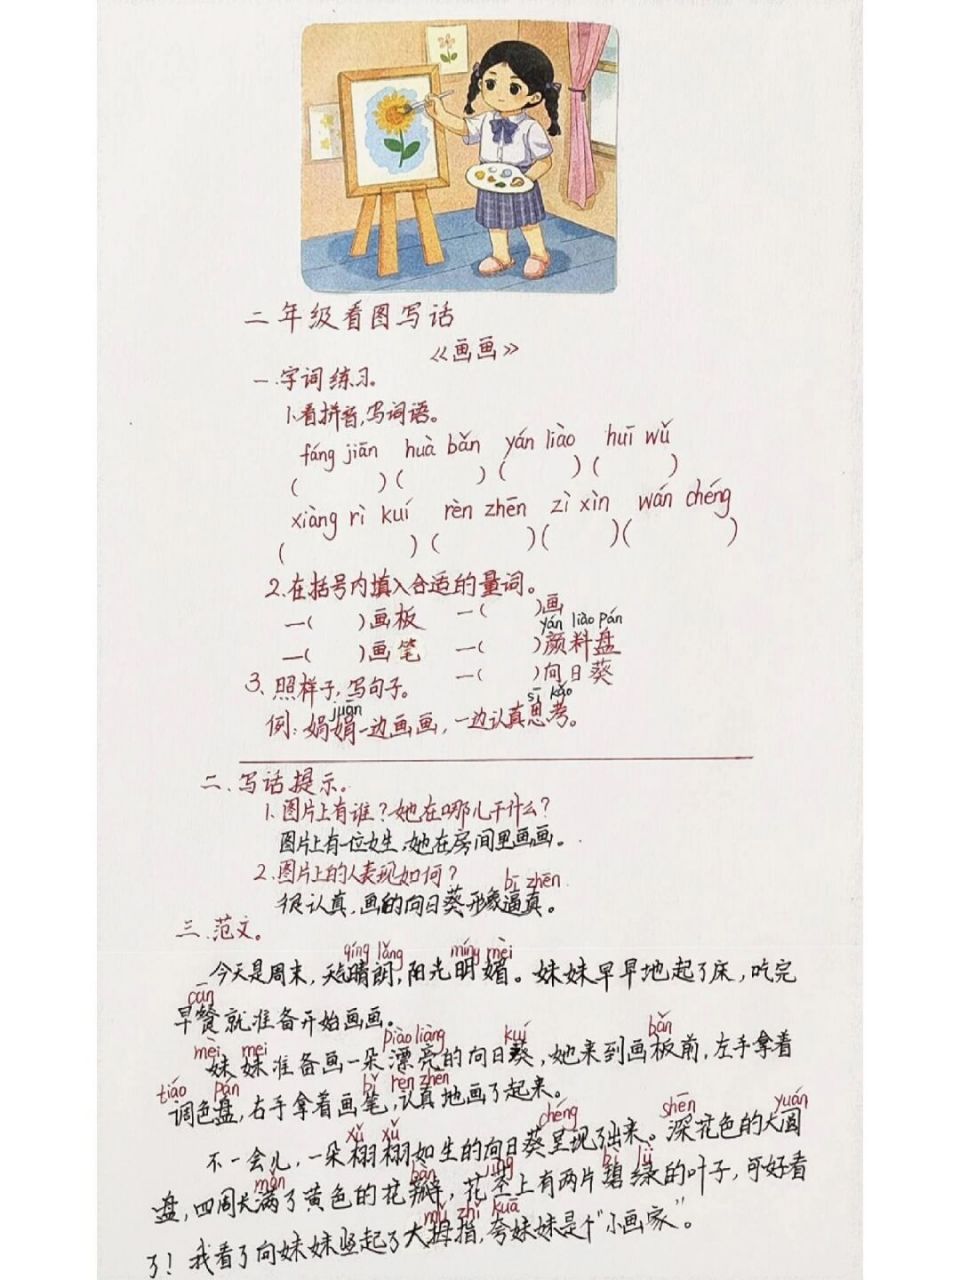 二年级看图写话
《画画》
一.字词练习。
1.看拼音,写词语。
fáng jiān huà bǎn yán liào huī wǔ
( )( )( )( )
xiàng rì kuí rèn zhēn zì xìn wán chéng
( )( )( )( )
2.在括号内填入合适的量词。
一( )画板 一( )画
yán liào pán
一( )画笔 一( )颜料盘
一( )向日葵
3、照样子,写句子。
juān sī kǎo
例:娟娟一边画画,一边认真思考。
二.写话提示。
1.图片上有谁?她在哪儿干什么?
图片上有一位女生,她在房间里画画。
2.图片上的人表现如何?
bī zhēn
很认真,画的向日葵形象逼真。
三.范文。
qíng lǎng míng mèi
今天是周末,天气晴朗,阳光明媚。妹妹早早地起了床,吃完
cān
早餐就准备开始画画。
mèi mei piào liàng kuí bǎn
妹妹准备画一朵漂亮的向日葵,她来到画板前,左手拿着
tiáo pán bǐ rèn zhēn
调色盘,右手拿着画笔,认真地画了起来。
xǔ xǔ chéng shēn yuán
不一会儿,一朵栩栩如生的向日葵呈现了出来。深花色的大圆
mǎn bàn jīng bì lǜ
盘,四周长满了黄色的花瓣,花茎上有两片碧绿的叶子,可好看
mǔ zhǐ kuā
了!我看了向妹妹竖起了大拇指,夸妹妹是个“小画家”。